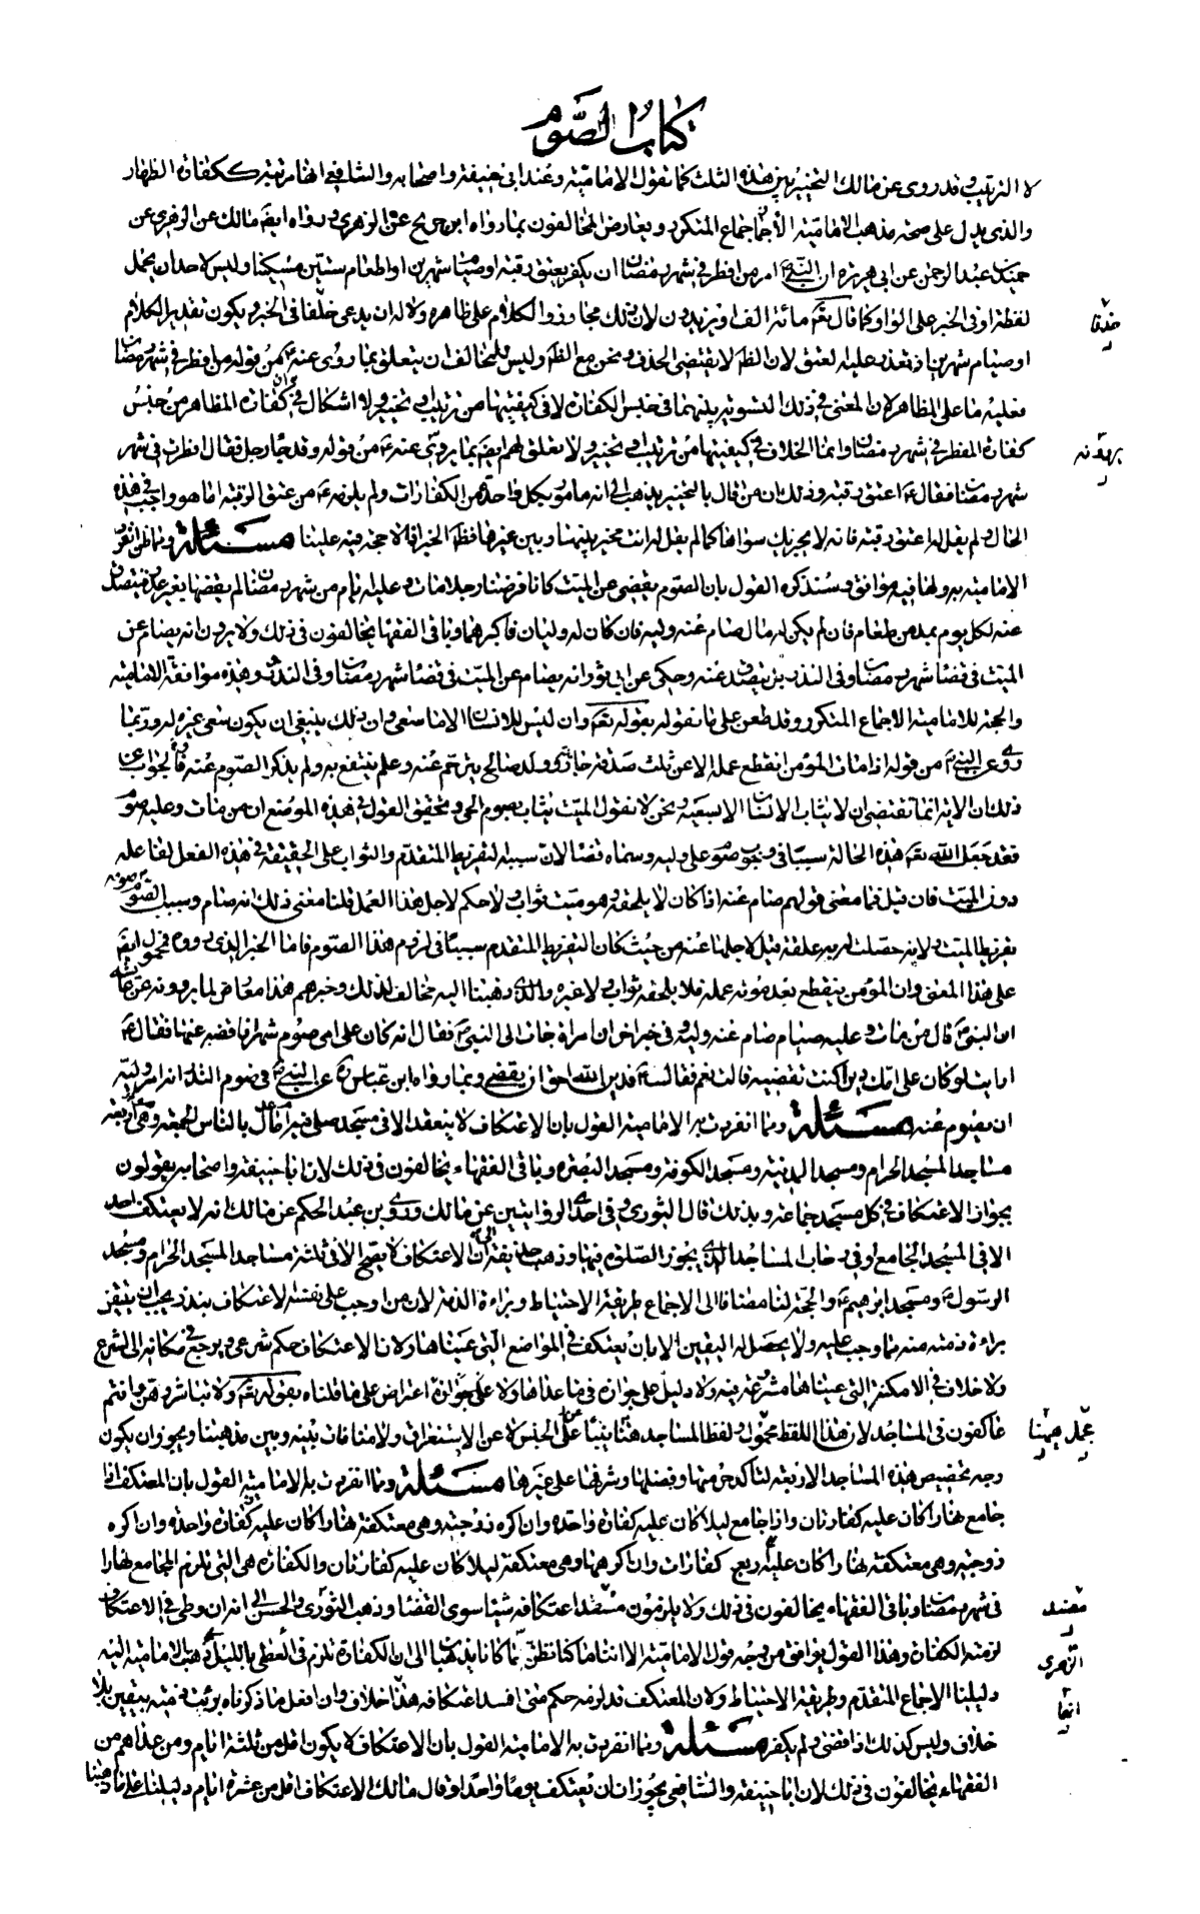 كتاب الصوم
لا الترتيب وقد روى عن مالك التخيير بين هذه الثلث كما تقول الامامية وعند ابى حنيفة واصحابه والشافعي انها مرتبة ككفارة الظهار
والذى يدل على صحة مذهب الامامية الاجماع المتكرر ويعارض المخالفون بما رواه ابن جريح عن الزهري ورواه ايضا مالك عن الزهري عن
حميد بن عبد الرحمن عن ابى هريرة ان النبي امر من افطر في شهر رمضان ان يكفر بعتق رقبة او صيام شهرين او اطعام ستين مسكينا وليس لاحد ان يحمل
لفظة او فى الخبر على الواو كما قال تعالى مائة الف او يزيدون لان ذلك مجاز والكلام على ظاهره ولا له ان يدعى حذفا فى الخبر ويكون تقدير الكلام
او صيام شهرين اذ تعذر عليه العتق لان الظاهر لا يقتضى الحذف ونحن مع الظاهر وليس للمخالف ان يتعلق بما روى عنه من قوله من افطر في شهر رمضان
فعليه ما على المظاهر لان المعنى في ذلك التسوية بينهما فى جنس الكفارة لا فى كيفيتها من ترتيب او تخيير ولا اشكال في ان كفارة المظاهر من جنس
كفارة المفطر في شهر رمضان وانما الخلاف في كيفيتها من ترتيب او تخيير ولا تعلق لهم ايضا بما يروى عنه من قوله وقد جاءه رجل فقال افطرت في شهر
شهر رمضان فقال اعتق رقبة وذلك ان من قال بالتخيير يذهب الى انه مامور بكل واحدة من الكفارات ولم يلزمه من عتق الرقبة الا ما هو واجب في هذه
الحال ولم يقل له اعتق رقبة فانه لا يجزيك سواها كما لم يقل له انت مخير بينها وبين غيرها فظاهر الخبر انه لا حجة فيه علينا مسئلة ومما ظن انفراد
الامامية به ولها فيه موافق وسنذكره القول بان الصوم يقضى عن الميت كانا فرضنا رجلا مات وعليه ايام من شهر رمضان لم يقضها بغير عذر فيتصدق
عنه لكل يوم بمد من طعام فان لم يكن له مال صام عنه وليه فان كان له وليان فاكبرهما وباقى الفقهاء يخالفون فى ذلك ولا يرون انه يصام عن
الميت فى قضاء شهر رمضان وفى النذر بن يتصدق عنه وحكى عن ابى ثور انه يصام عن الميت فى قضاء شهر رمضان وفى النذر وهذه موافقة للامامية
والحجة للامامية الاجماع المتكرر وقد طعن على ما نقوله بقوله تعالى وان ليس للانسان الا ما سعى وان ذلك ينبغي ان يكون سعى غيره له وربما
روى عن النبي من قوله اذا مات المؤمن انقطع عمله الا عن ثلث صدقة جارية وولد صالح يترحم عنه وعلم ينتفع به ولم يذكر الصوم عنه فالجواب عن
ذلك ان الاية انما تقتضى ان لا يثاب الانسان الا بسعيه ونحن لا نقول الميت يثاب بصوم الحى وتحقيق القول في هذه الموضع ان من مات وعليه صوم
فقد جعل الله تعالى هذه الحالة سببا فى وجوب صوم على وليه وسماه قضاء لان سببه لتفريط المتقدم والثواب على الحقيقة في هذه الفعل لفاعله
دون الميت فان قيل فما معنى قولهم صام عنه اذا كان لا يلحقه وهو ميت ثواب ولا حكم لاجل هذا العمل قلنا معنى ذلك انه صام وسبب الصوم صومه
تفريط الميت ولانه حصلت له به علقة قيل لاجلها عنه من حيث كان التفريط المتقدم سببا فى لزوم هذا الصوم فاما الخبر الذى رووه فمحمول ايضا
على هذا المعنى وان المؤمن ينقطع بعد موته عمله فلا يلحقه ثواب ولا غيره والذى ذهبنا اليه مخالف لذلك وخبرهم هذا معارض بما يروونه عن عائشة
ان النبي قال من مات وعليه صيام صام عنه وليه وفى خبر اخر ان امراة جاءت الى النبي فقال انه كان على امى صوم شهر افاقضيه عنها فقال
ارايت لو كان على امك دين اكنت تقضيه قالت نعم فقال فدين الله احق ان يقضى وبما رواه ابن عباس عن النبي في صوم النذر انه امر وليه
ان يصوم عنه مسئلة ومما انفردت به الامامية القول بان الاعتكاف لا ينعقد الا فى مسجد صلى فيه امام عدل بالناس الجمعة وهى اربعة
مساجد المسجد الحرام ومسجد المدينة ومسجد الكوفة ومسجد البصرة وباقى الفقهاء يخالفون فى ذلك لان ابا حنيفة واصحابه يقولون
بجواز الاعتكاف في كل مسجد جماعة وبذلك قال الثوري وفى احدى الروايتين عن مالك وروى بن عبد الحكم عن مالك انه لا يعتكف احد
الا فى المسجد الجامع او فى رحاب المساجد الذى يجوز الصلوة فيها وذهب حذيفة الى ان الاعتكاف لا يصح الا فى ثلثة مساجد المسجد الحرام ومسجد
الرسول ومسجد ابراهيم والحجة لنا مضافا الى الاجماع طريقة الاحتياط وبراءة الذمة لان من اوجب على نفسه الاعتكاف بنذر يجب ان يتيقن
براءة ذمته منه مما وجب عليه ولا يحصل له اليقين الا بان يعتكف في المواضع التى عيناها ولان الاعتكاف حكم شرعى ويرجع في مكانه الى الشرع
ولا خلاف في الامكنة التى عيناها مشروعة فيه ولا دليل على جوازه فى ما عداها ولا على جوازه اعتراض على ما قلناه بقوله تعالى ولا تباشروهن وانتم
عاكفون فى المساجد لان هذا اللفظ مجمول ولفظ المساجد هنا ينبئا عن على الجنس لا عن الاستغراق ولا منافات بينه وبين مذهبنا ويجوز ان يكون
وجه تخصيص هذه المساجد الاربعة لتاكد حرمتها وفضلها وشرفها على غيرها مسئلة ومما انفردت به الامامية القول بان المعتكف اذا
جامع نهارا كان عليه كفارتان واذا جامع ليلا كان عليه كفارة واحدة وان اكره زوجته وهى معتكفة نهارا كان عليه كفارة واحدة وان اكره
زوجته وهى معتكفة نهارا كان عليه اربع كفارات وان اكرهها وهى معتكفة ليلا كان عليه كفارتان والكفارة هى التى تلزم المجامع نهارا
فى شهر رمضان وباقى الفقهاء يخالفون فى ذلك ولا يلزمون مفسد اعتكافه شيئا سوى القضاء وذهب الثورى والحسن الى انه ان وطى في الاعتكاف
لزمته الكفارة وهذا القول يوافق من وجه قول الامامية الا انا ما كنا نظن انهما كانا يذهبان الى ان الكفارة تلزم فى الوطى بالليل كما ذهبت الامامية اليه
دليلنا الاجماع المتقدم وطريقة الاحتياط ولان المعتكف قد لزمه حكم متى افسد اعتكافه بلا خلاف وان افعل ما ذكرناه برئت ذمته بيقين بلا
خلاف وليس كذلك اذا قضى ولم يكفر مسئلة ومما انفردت به الامامية القول بان الاعتكاف لا يكون اقل من ثلثة ايام ومن عداهم من
الفقهاء يخالفون فى ذلك لان ابا حنيفة والشافعي يجوزان ان يعتكف يوما واحدا وقال مالك لا اعتكاف اقل من عشرة ايام دليلنا على ما ذهبنا
حذفا
يروونه
مجمل هيهنا
مفسد
الزهرى
انهما